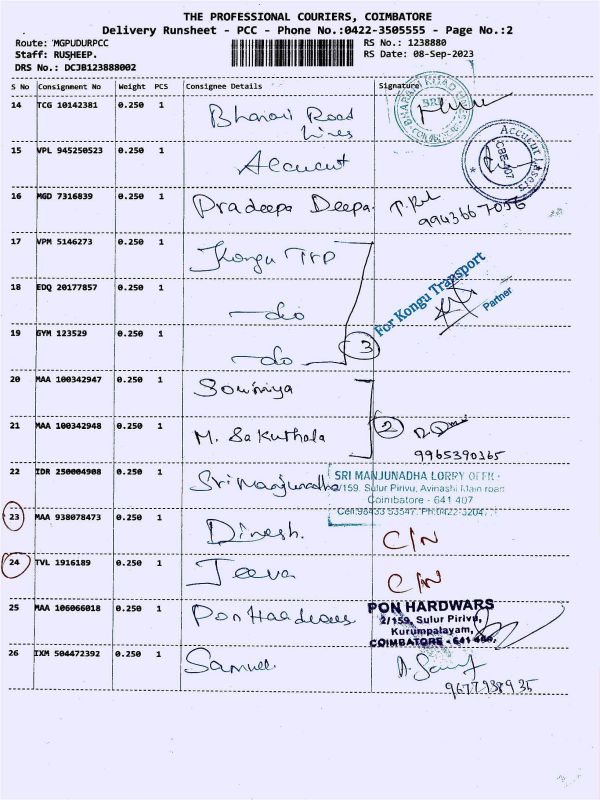 THE PROFESSIONAL COURIERS, COIMBATORE
Delivery Runsheet - PCC - Phone No.:0422-3505555 - Page No.:2
Route: MGPUDURPCC RS No.: 1238880
Staff: RUSHEEP. RS Date: 08-Sep-2023
DRS No.: DCJB123888002
S No Consignment No Weight PCS Consignee Details Signature
14 TCG 10142381 0.250 1 Bharat Road
Lines
15 VPL 945250523 0.250 1 Accucut
Accucut Lasers
CBE-407
16 MGD 7316839 0.250 1 Pradeepa Deepa.
9943667056
17 VPM 5146273 0.250 1 Kongu TPP
18 EDQ 20177857 0.250 1 -do
For Kongu Transport
Partner
19 GYM 123529 0.250 1 -do 3
20 MAA 100342947 0.250 1 Sowmiya
21 MAA 100342948 0.250 1 M. Sakuthala 2
9965390165
22 IDR 250004908 0.250 1 Sri Manjunadha
SRI MANJUNADHA LORRY OFFICE
2/159, Sulur Pirivu, Avinashi Main road
Coimbatore - 641 407
Cell:98433 53547. Ph:0422-32047
23 MAA 938078473 0.250 1 Dinesh. C/N
24 TVL 1916189 0.250 1 Jeeva C/N
25 MAA 106066018 0.250 1 Pon Hardwares
PON HARDWARS
2/159, Sulur Pirivu,
Kurumpalayam,
COIMBATORE - 641 406,
26 IXM 504472392 0.250 1 Samuel.
9677938935